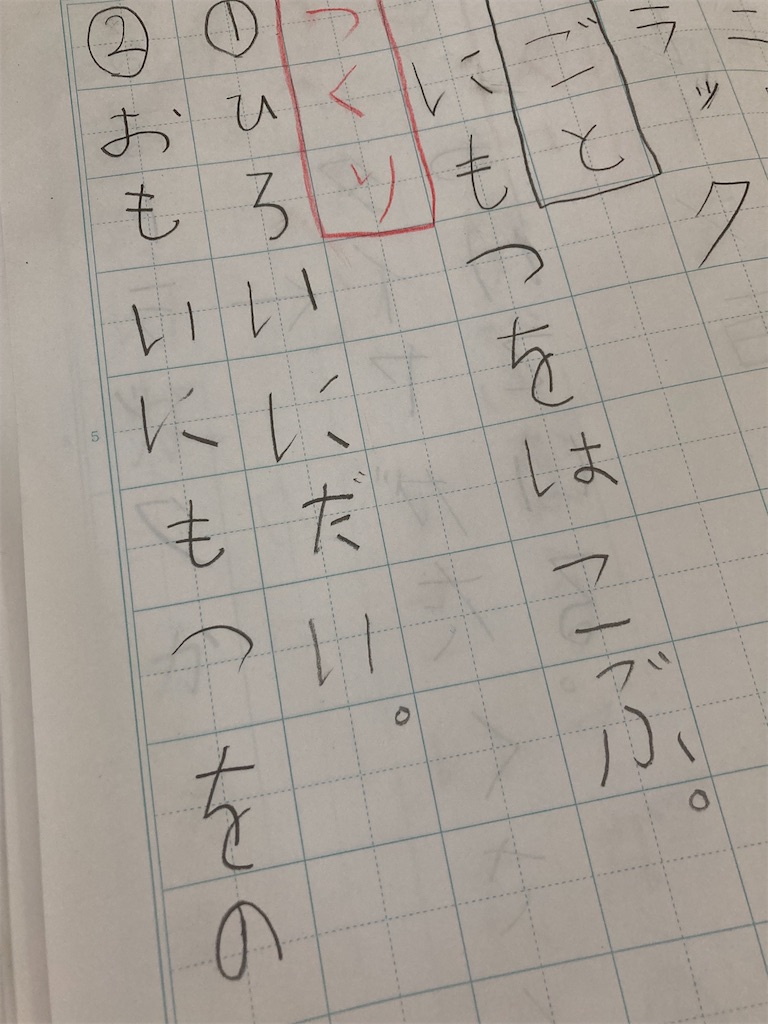 ラック
ごと
にもつをはこぶ。
つくり
①ひろいにだい。
②おもいにもつをの
5